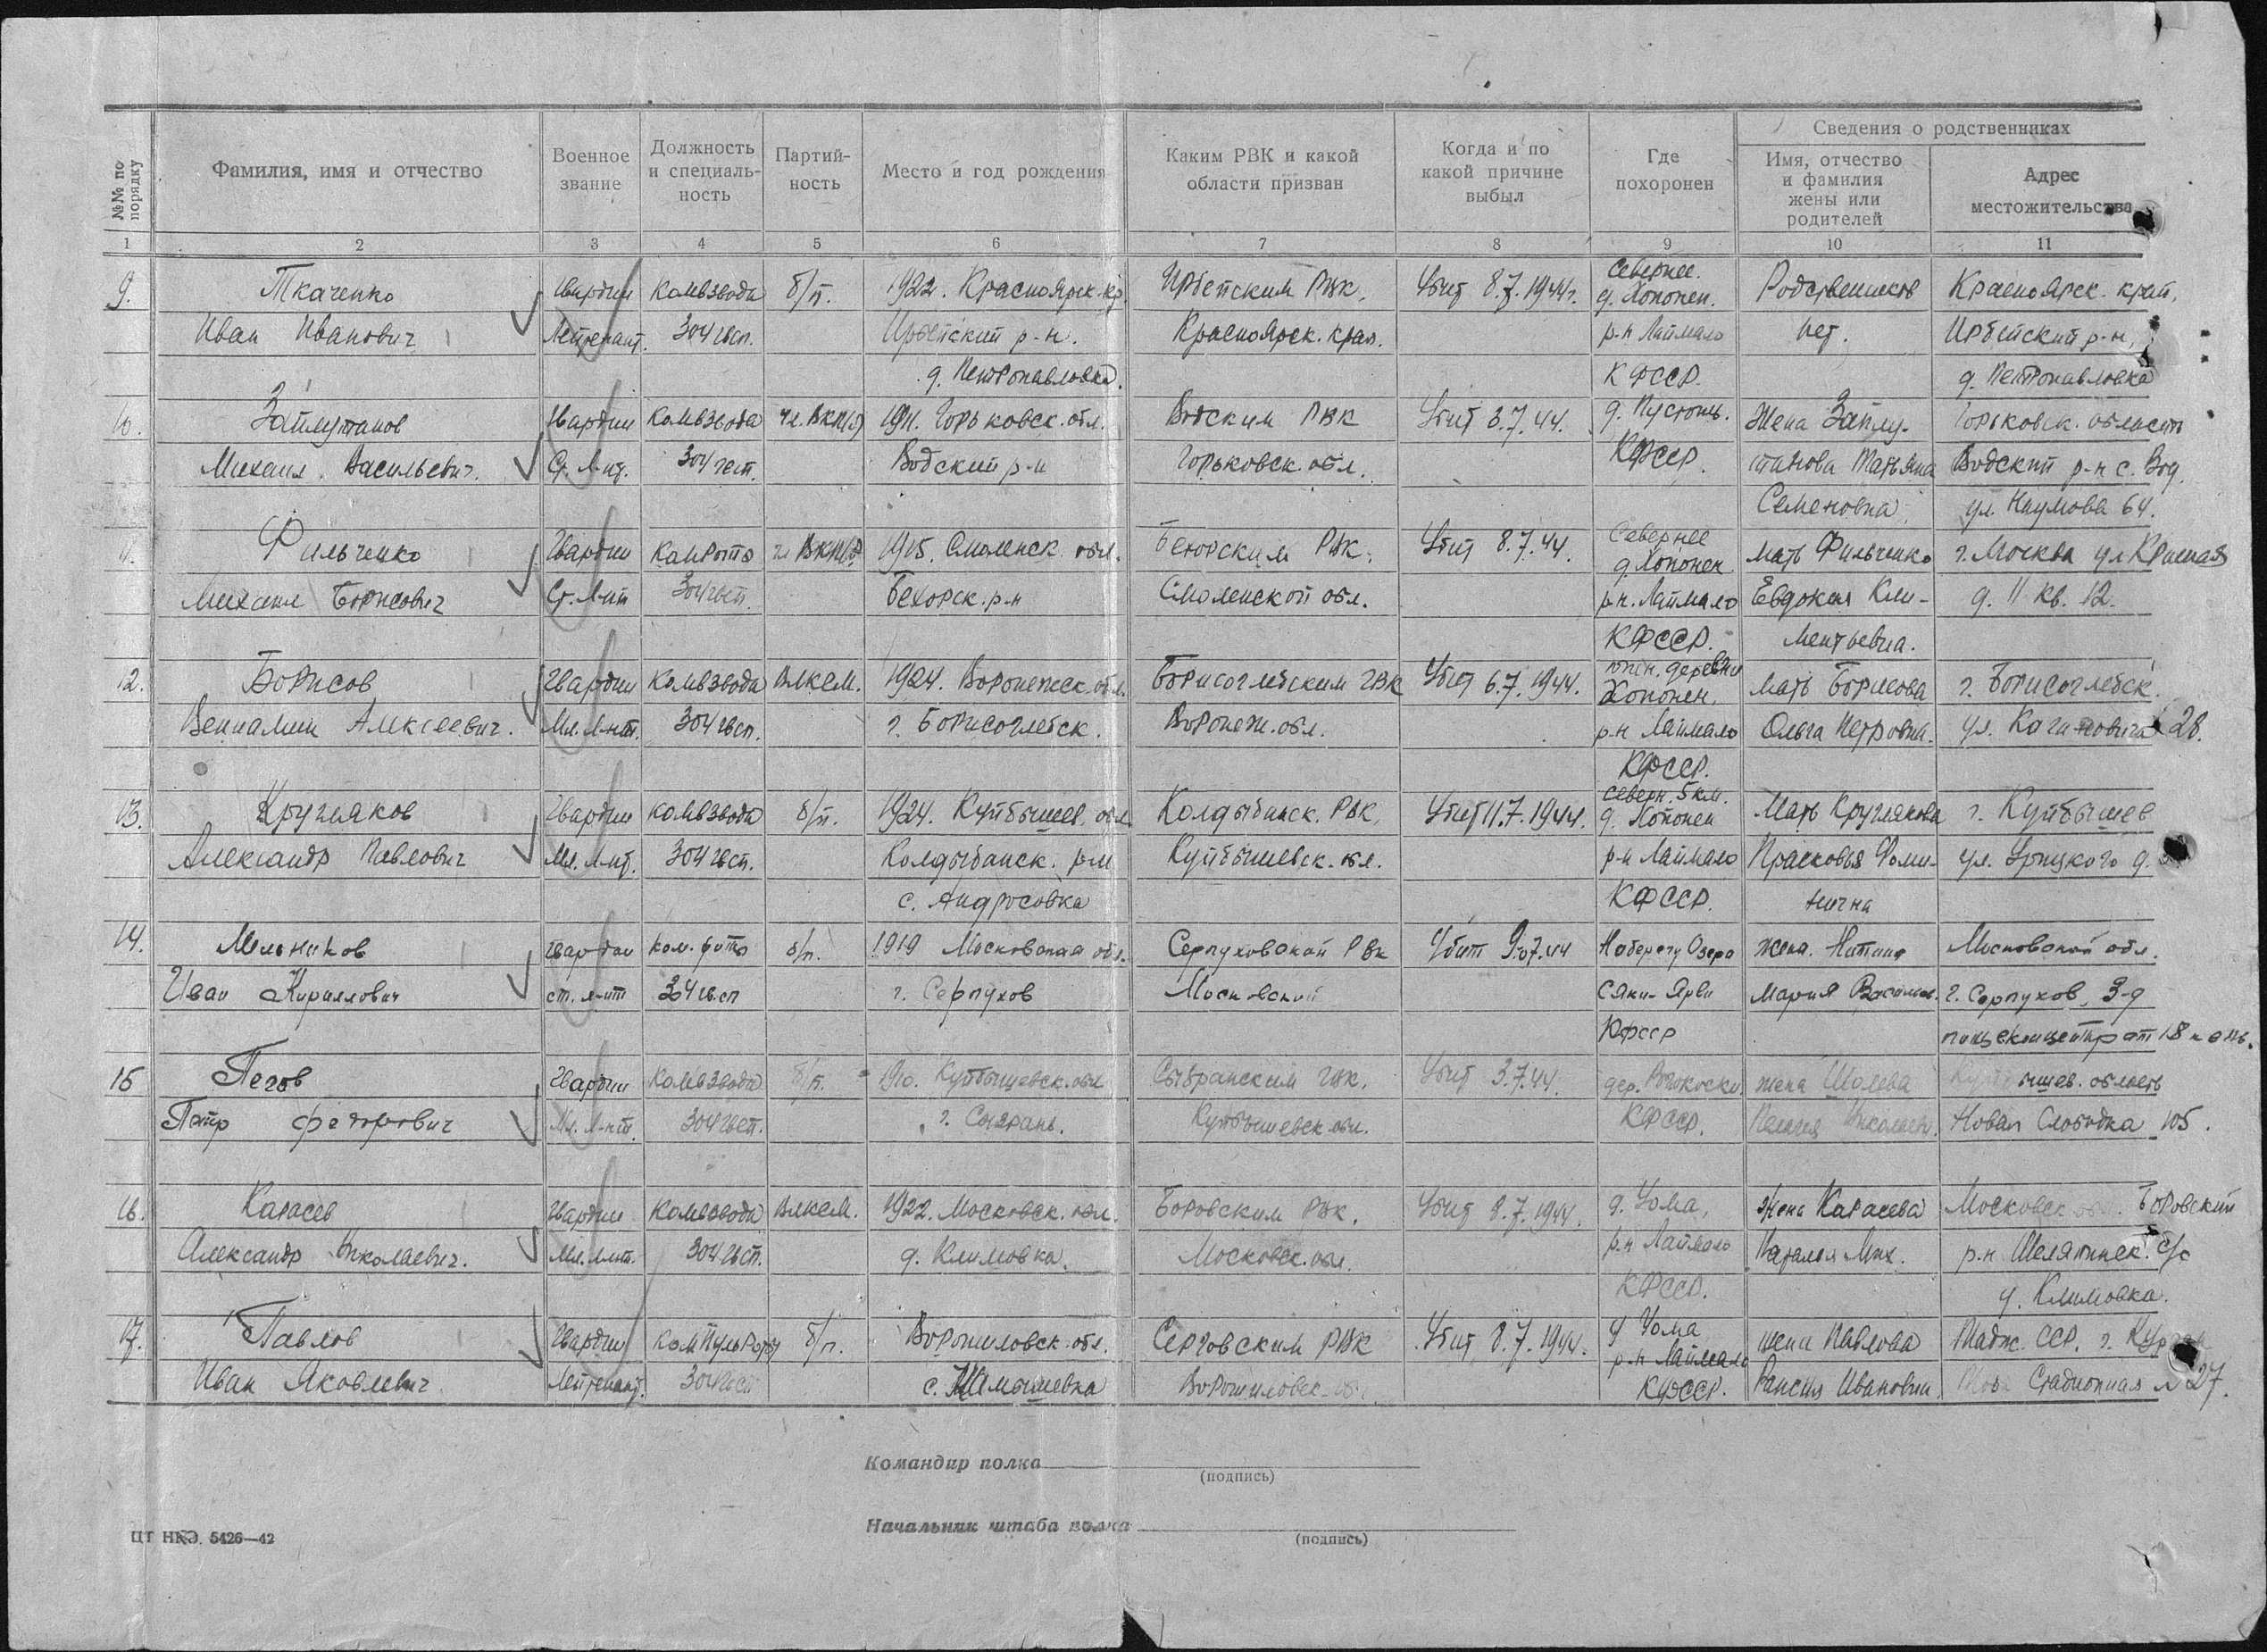 №№ по порядку
Фамилия, имя и отчество
Военное звание
Должность и специаль-ность
Партий-ность
Место и год рождения
Каким РВК и какой области призван
Когда и по какой причине выбыл
Где похоронен
Сведения о родственниках
Имя, отчество и фамилия жены или родителей
Адрес местожительства
1 2 3 4 5 6 7 8 9 10 11
9. Ткаченко Гвардии Комвзвода б/п. 1922. Красноярск. кр. Ирбейским РВК, Убит 8.7.1944г. Севернее. д. Хопонен. Родственников Красноярск. край,
Иван Иванович Лейтенант. 304 гвсп. Ирбейский р-н. Красноярск. края. р-н Лаймало нет. Ирбейский р-н,
д. Петропавловка. КФССР. д. Петропавловка
10. Гвардии Комвзвода чл. ВКП(б) 1911. Горьковск. обл. Вадским РВК Убит 3.7.44. д. Жена Горьковск. область
Михаил Васильевич. Ст. Л-нт. 304 гвсп. Водский р-н Горьковск. обл. КФССР. Татьяна Водский р-н с. Вод.
Семеновна. ул. Наумова 64.
11. Фильченко Гвардии Комроты чл ВКП(б) 1915. Смоленск. обл. РВК. Убит 8.7.44. Севернее мать Фильченко г. Москва ул
Михаил Борисович Ст. Л-нт 304 гвсп. р-н Смоленской обл. д. Хопонен р-н. Лаймало Евдокия Кли- д. 11 кв. 12.
КФССР. ментьевна.
12. Борисов Гвардии Комвзвода ВЛКСМ. 1924. Воронежск. обл. Борисоглебским ГВК Убит 6.7.1944. деревни Хопонен. мать Борисова г. Борисоглебск.
Вениамин Алексеевич. Мл. Л-нт. 304 гвсп. г. Борисоглебск. Воронеж. обл. р-н Лаймало Ольга Петровна. ул. Кагановича 28.
КФССР.
13. Кругляков Гвардии Комвзвода б/п. 1924. Куйбышев. обл. Колдыбанск. РВК, Убит 11.7.1944. северн. 5 км. д. Хопонен Мать Круглякова г. Куйбышев
Александр Павлович Мл. Л-нт. 304 гвсп. Колдыбанск. р-н Куйбышевск. обл. р-н Лаймало Прасковья Фоми- ул. Урицкого д.
с. Андросовка КФССР. нична
14. Мельников Гвардии ком. роты б/п. 1919 Московская обл. Серпуховской РВК Убит 9.07.44 На берегу Озера жена. Московской обл.
Иван Кириллович ст. л-нт 304 гв.сп г. Серпухов Московский Сяки-Ярви Мария Васильев. г. Серпухов, 3-д
КФССР пищеконцентратт 18
15 Пегов Гвардии Комвзвода б/п. 1910. Куйбышевск. обл Сызранским ГВК. Убит 3.7.44. дер. жена Куйбышев. область
Петр Федорович Мл. Л-нт. 304 гвсп. г. Сызрань. Куйбышевск обл. КФССР. Новая Слободка 105.
16. Карасев Гвардии Комвзвода ВЛКСМ. 1922. Московск. обл. Боровским РВК. Убит 8.7.1944. д. Уома, Жена Карасева Московск. обл. Боровский
Александр Николаевич. Мл. Л-нт. 304 гвсп. д. Климовка. Московск. обл. р-н Лаймало Наталья Мих. р-н. с/с
КФССР. д. Климовка.
17. Павлов Гвардии Компульроты б/п. Ворошиловск. обл. РВК Убит 8.7.1944. д Уома жена Павлова Тадж. ССР. г.
Иван Яковлевич Лейтенант. 304 гвсп с. Ворошиловск. об. р-н Лаймало КФССР. Ивановн. Стадионная 27.
Командир полка
(подпись)
Начальник штаба полка
(подпись)
ЦТ НКО. 5426—42